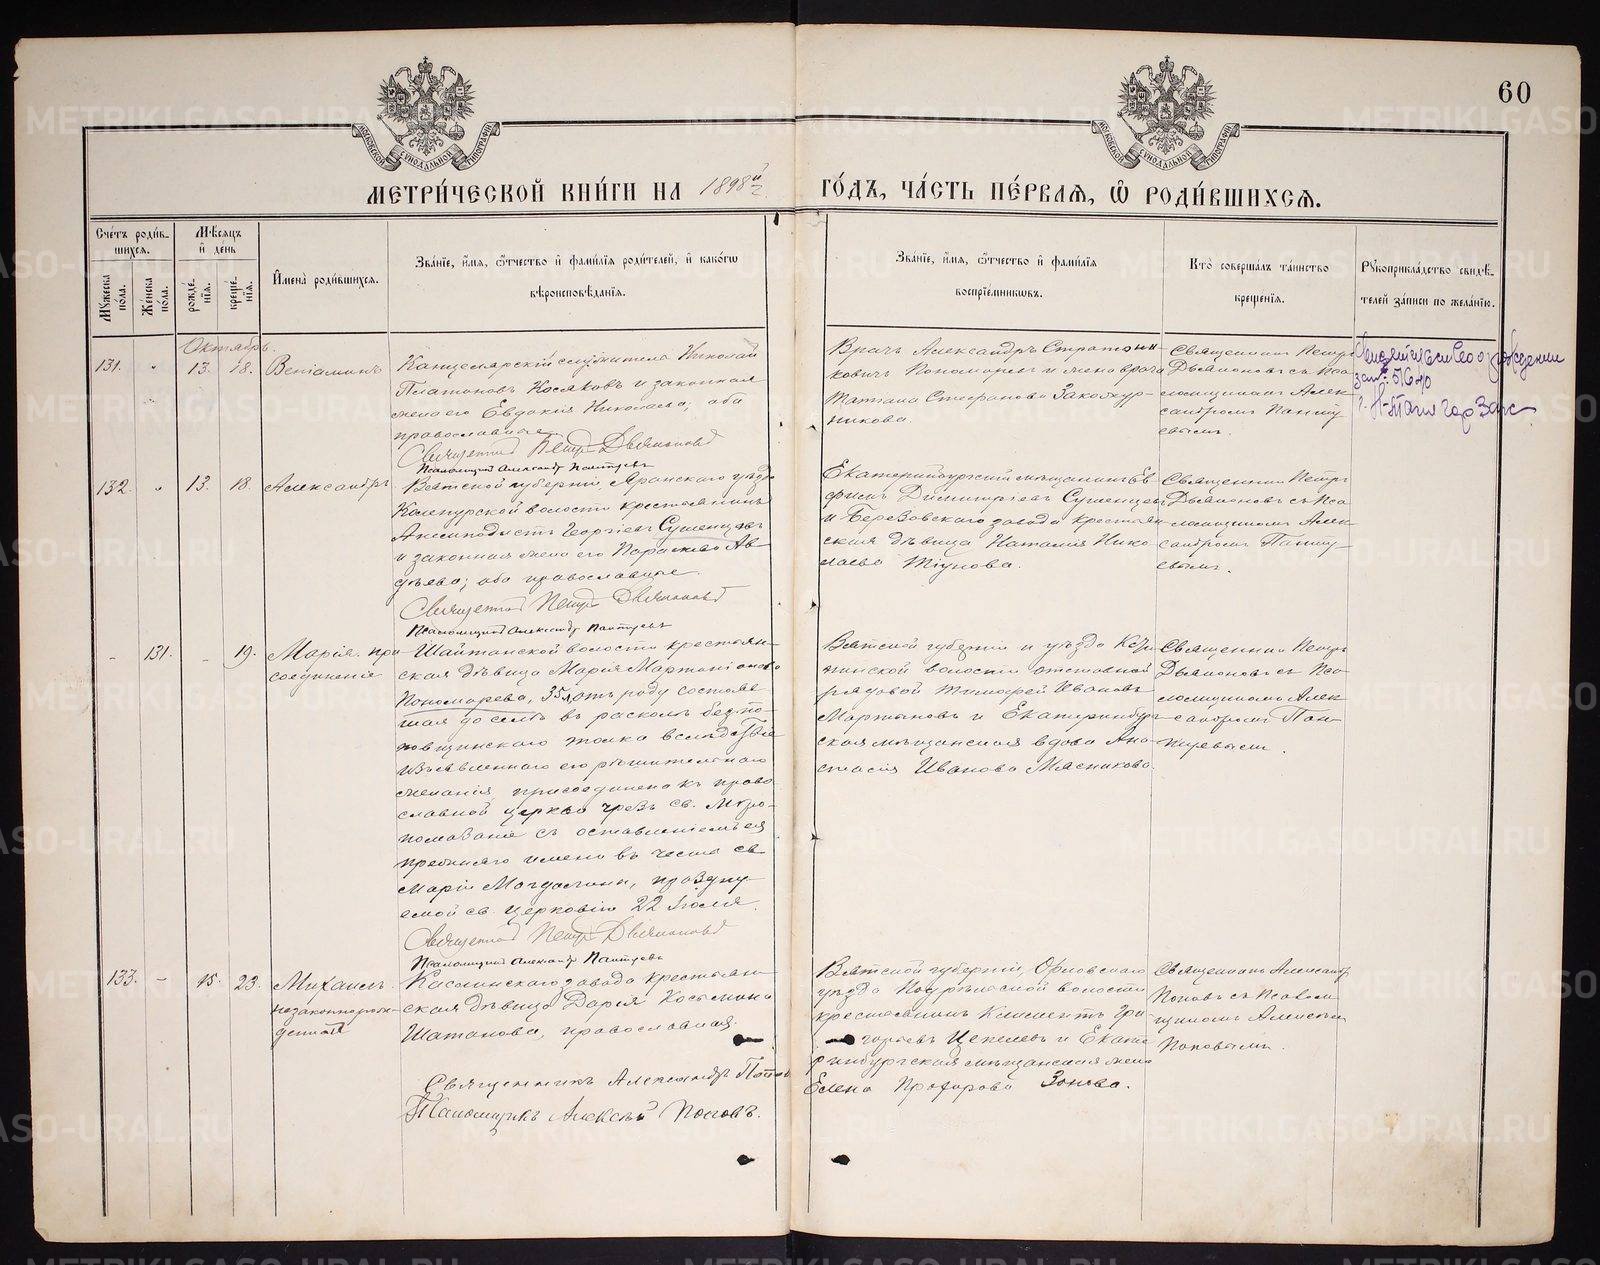 60
МОСКОВСКОЙ СѴНОДАЛЬНОЙ ТИПОГРАФІИ
МОСКОВСКОЙ СѴНОДАЛЬНОЙ ТИПОГРАФІИ
МЕТРИ́ЧЕСКОЙ КНИ́ГИ НА 1898 й
ГО́ДЪ, ЧА́СТЬ ПЕ́РВАѦ, Ѡ҆ РОДИ́ВШИХСѦ.
Сче́тъ роди́в-
шихсѧ.
Мꙋ́жеска по́ла.
Же́нска по́ла.
Мѣ́сѧцъ
и҆ де́нь
рожде́нїѧ.
креще́нїѧ.
И҆мена̀ роди́вшихсѧ.
Зва́нїе, и҆́мѧ, ѻ҆́тчество и҆ фами́лїѧ роди́телей, и҆ како́гѡ
вѣроисповѣ́данїѧ.
Зва́нїе, и҆́мѧ, ѻ҆́тчество и҆ фами́лїѧ
воспрїе́мникѡвъ.
Кто̀ соверша́лъ та́инство
креще́нїѧ.
Рꙋкоприкла́дство свидѣ́-
телей за́писи по жела́нїю.
Октябрь.
131. " 13. 18. Веніаминъ
Канцелярскій служитель Николай
Платоновъ Косяковъ и законная
жена его Евдокія Николаева; оба
православные.
Священникъ Петръ Дьяконовъ
Псаломщикъ Александръ Пантуевъ
Врачъ Александръ Стратони-
ковичъ Пономаревъ и жена врача
Татіана Стефанова Закожур-
никова.
Священникъ Петръ
Дьяконовъ съ Пса-
ломщикомъ Алек-
сандромъ Панту-
евымъ.
о рождении
5/6-40
г. Н-Тагил гор Загс
132. " 13. 18. Александръ
Вятской губерніи, Яранскаго уѣзда
волости крестьянинъ
Аксиподистъ Георгіевъ Суменцовъ
и законная жена его Параскева Ав-
дѣева; оба православные.
Священникъ Петръ Дьяконовъ
Псаломщикъ Александръ Пантуевъ
Екатеринбургскій мѣщанинъ Ев-
фимъ Димитріевъ Суменцовъ
и Березовскаго завода крестьян-
ская дѣвица Наталія Нико-
лаева Тіунова.
Священникъ Петръ
Дьяконовъ съ Пса-
ломщикомъ Алек-
сандромъ Панту-
евымъ.
- 131. - 19. Марія. при-
соединеніе
Шайтанской волости крестьян-
ская дѣвица Марія Мартоніанова
Пономарева, 35 л. отъ роду состояв-
шая до селѣ въ расколѣ безпо-
повщинскаго толка вслѣдствіе
изъявленнаго ею рѣшительнаго
желанія присоединена къ право-
славной церкви чрезъ св. Мѵро-
помазаніе съ оставленіемъ ея
прежняго имени въ честь св.
Маріи Магдалины, праздну-
емой св. Церковію 22 Іюля.
Священникъ Петръ Дьяконовъ
Псаломщикъ Александръ Пантуевъ
Вятской губерніи и уѣзда
волости отставной
рядовой Тимофей Ивановъ
Мартыновъ и Екатеринбург-
ская мѣщанская вдова Ана-
стасія Иванова Мясникова.
Священникъ Петръ
Дьяконовъ съ Пса-
ломщикомъ Алек-
сандромъ Пан-
туевымъ.
133. - 15. 23. Михаилъ
незаконнорож-
денный
Каслинскаго завода крестьян-
ская дѣвица Дарія Косьмина
Шатанова, православная.
Священникъ Александръ Поповъ
Псаломщикъ Алексѣй Поповъ.
Вятской губерніи, Орловскаго
уѣзда Подрѣльской волости
крестьянинъ Климентъ Гри-
горьевъ Цепелевъ и Екате-
ринбургская мѣщанская жена
Елена Профирова Зонова.
Священникъ Александръ
Поповъ съ Псалом-
щикомъ Алексѣемъ
Поповымъ.
METRIKI.GASO-URAL.RU